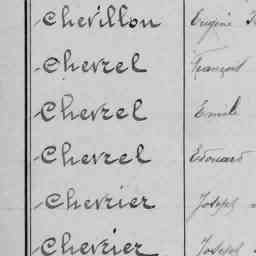 Chevillon Eugène
Chevrel François
Chevrel Emile
Chevrel Edouard
Chevrier Joseph
Chevrier Joseph